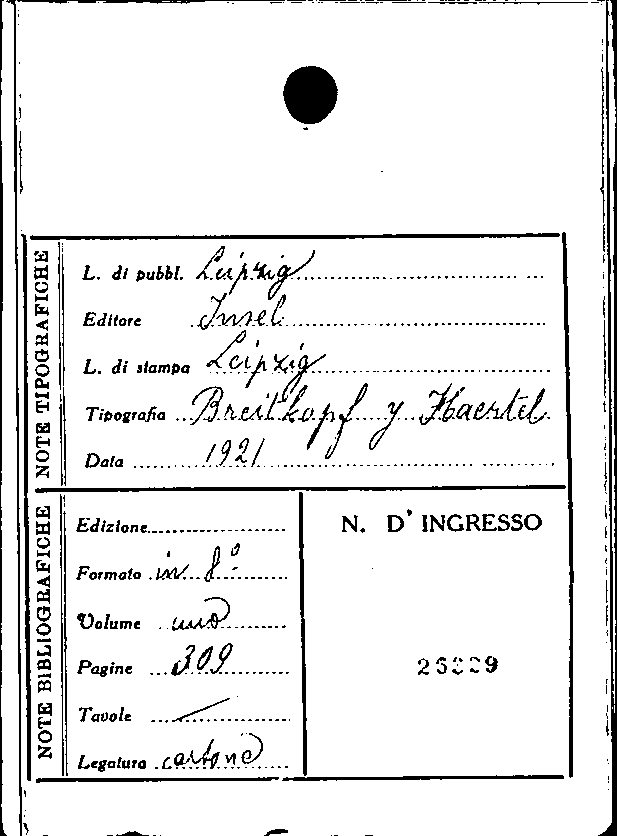 NOTE TIPOGRAFICHE
L. di pubbl. Leipzig
Editore Insel
L. di stampa Leipzig
Tipografia Breitkopf y Haertel
Data 1921
NOTE BIBLIOGRAFICHE
Edizione
Formato in 8º
Volume uno
Pagine 309
Tavole /
Legatura cartone
N. D' INGRESSO